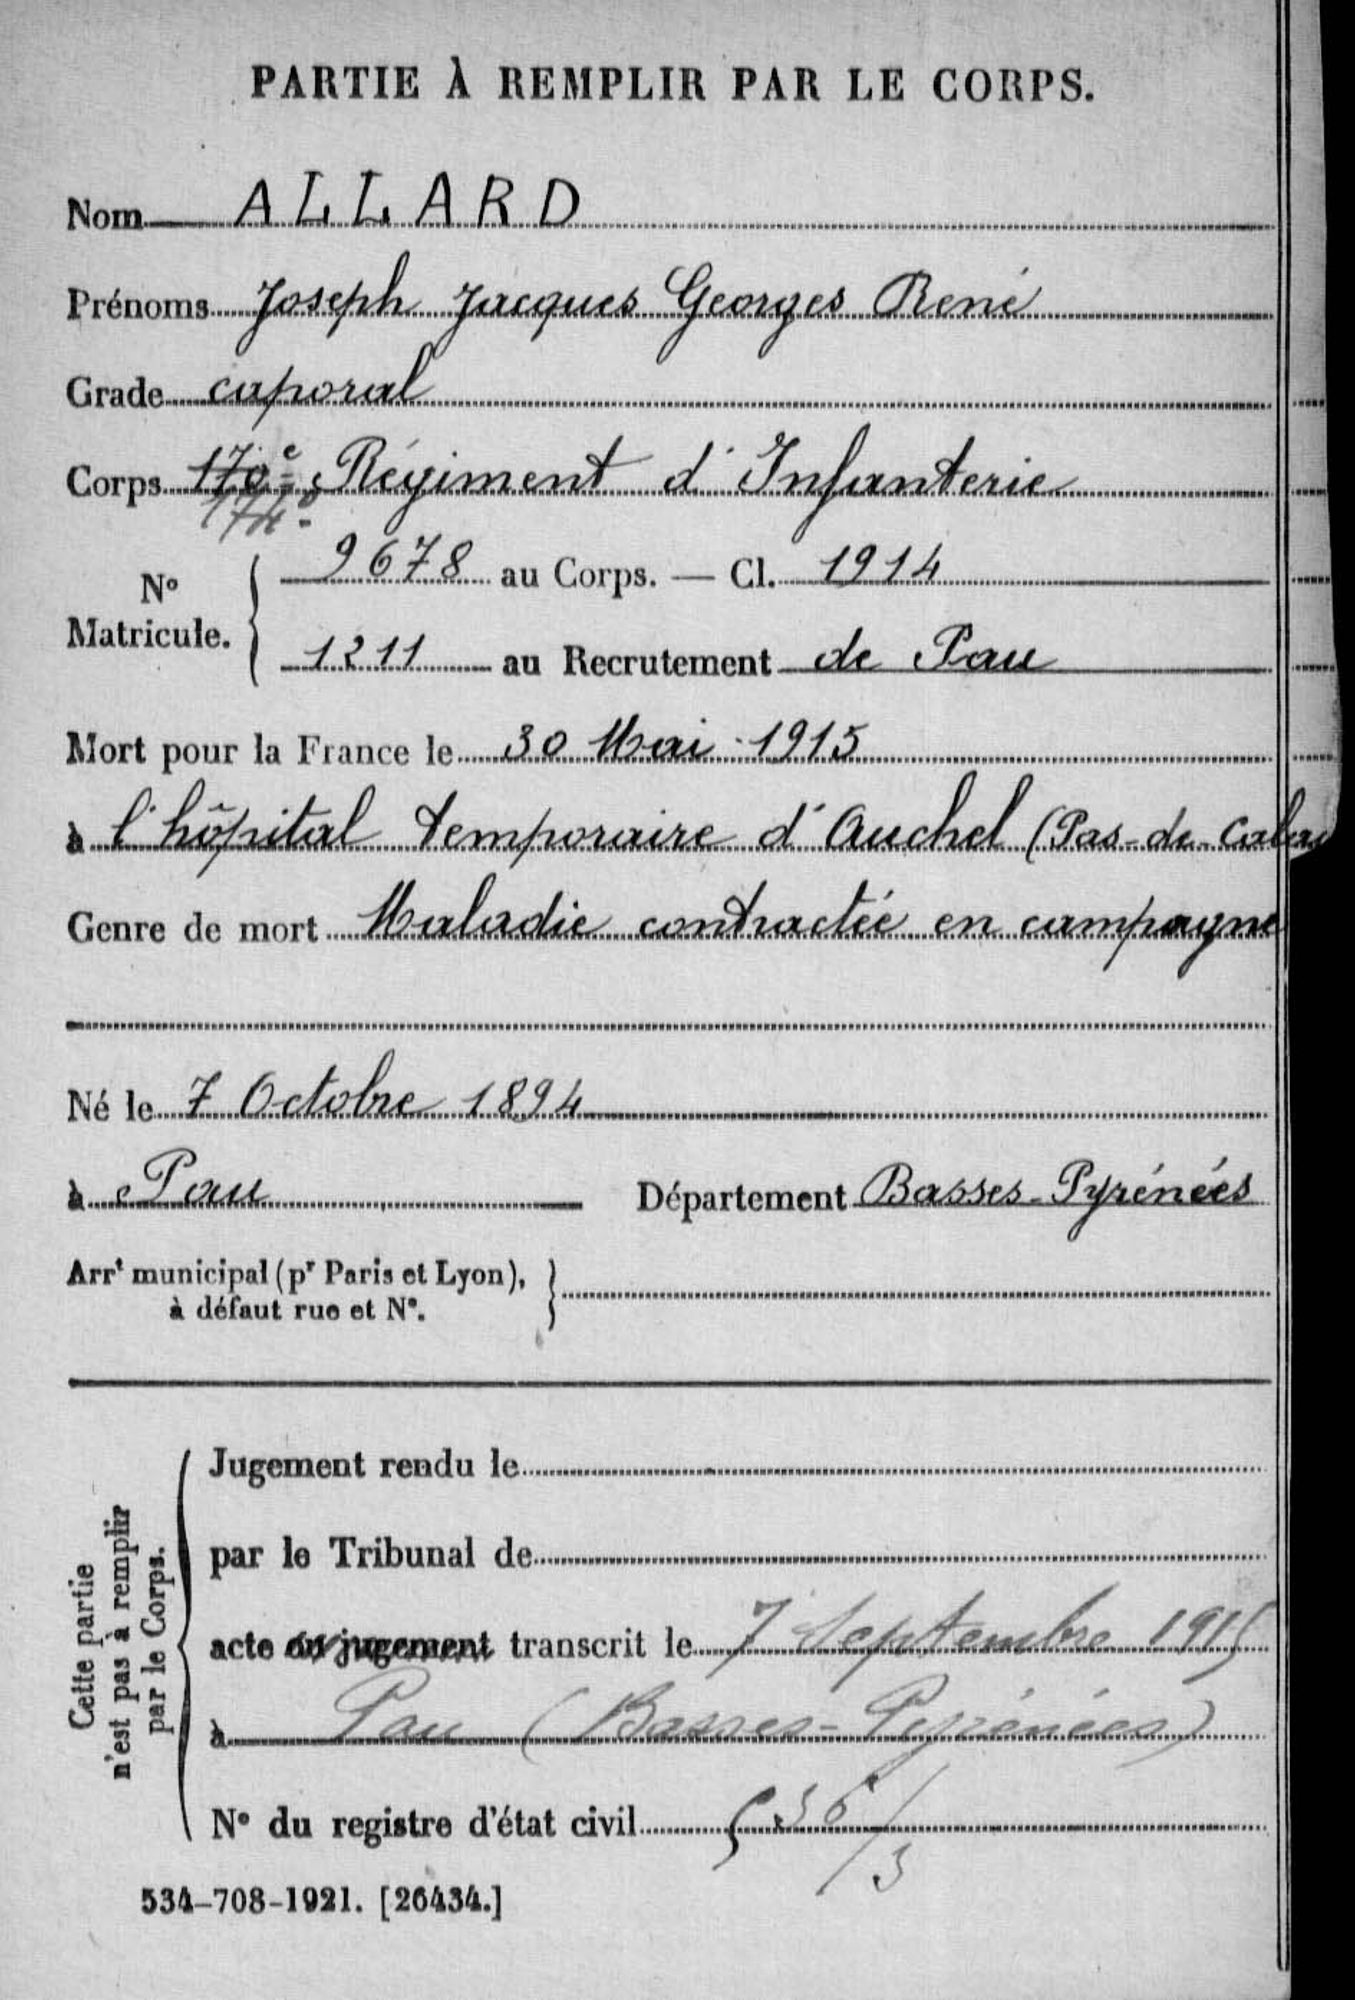 PARTIE À REMPLIR PAR LE CORPS.
Nom ALLARD
Prénoms Joseph Jacques Georges René
Grade caporal
Corps 170e Régiment d'Infanterie
174e
N° Matricule. 9678 au Corps. — Cl. 1914
1211 au Recrutement de Pau
Mort pour la France le 30 Mai 1915
à l'hôpital temporaire d'Auchel (Pas-de-Calais
Genre de mort Maladie contractée en campagne
Né le 7 Octobre 1894
à Pau Département Basses-Pyrénées
Arrt municipal (pr Paris et Lyon),
à défaut rue et N°.
Cette partie
n'est pas à remplir
par le Corps.
Jugement rendu le
par le Tribunal de
acte ou jugement transcrit le 7 Septembre 1915
à Pau (Basses-Pyrénées)
N° du registre d'état civil 536/3
534-708-1921. [26434.]